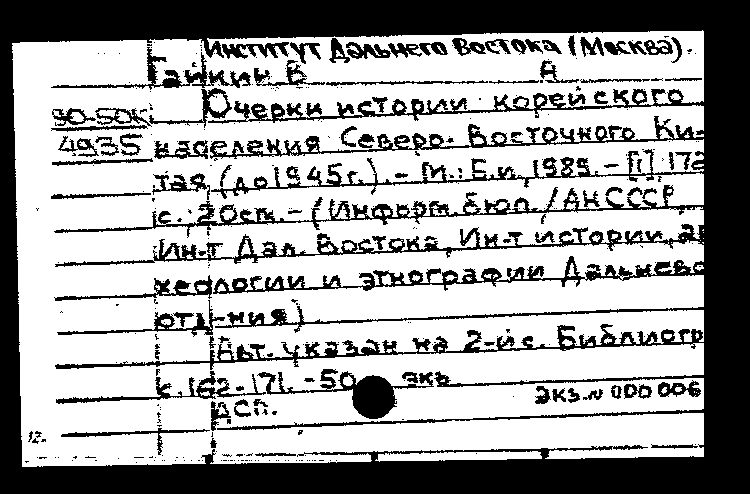 Институт Дальнего Востока (Москва).
Гайкин В А
Очерки истории корейского
90-50к
4935 населения Северо-Восточного Ки-
тая (до 1945г.).- М.: Б.и, 1989. - [1] 172
с.; 20см. - (Информ. бюл. / АН СССР,
Ин-т Дал. Востока, Ин-т истории, ар
хеологии и этнографии Дальнево
отд-ния)
Авт. указан на 2-й с. Библиогр
с. 162-171. - 50 экз.
ДСП. Экз. N 000 006
12.